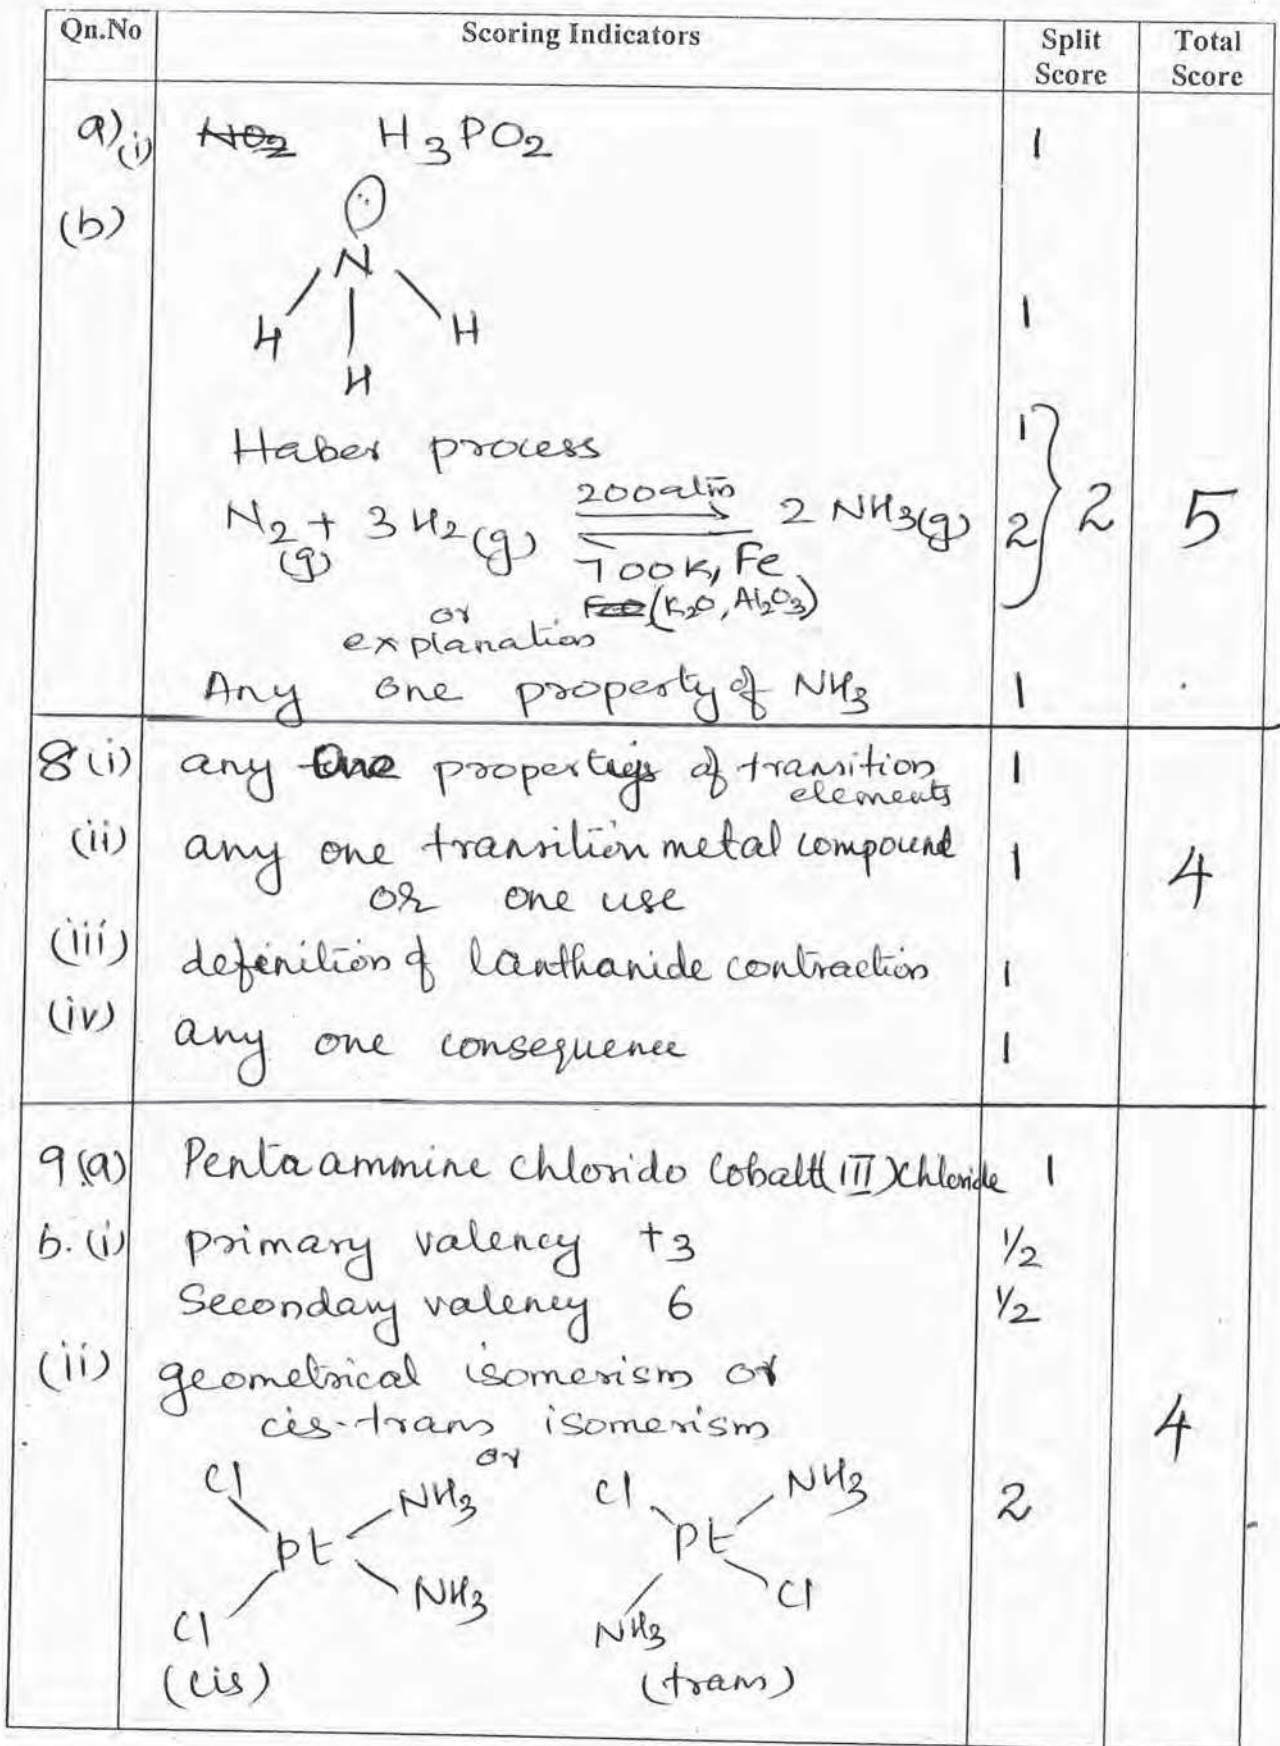 Qn.No Scoring Indicators Split Score Total Score
a)(i) NO2 H3PO2 1
(b)
N
H H H
1
Haber process 1
N2(g) + 3H2(g) 200atm 2NH3(g) 2 } 2 5
700K, Fe
(K2O, Al2O3)
or
explanation
Any one property of NH3 1
8(i) any one properties of transition elements 1
(ii) any one transition metal compound 1 4
or one use
(iii) definition of lanthanide contraction 1
(iv) any one consequence 1
9(a) Pentaammine chlorido Cobalt(III)chloride 1
b.(i) primary valency +3 1/2
Secondary valency 6 1/2
(ii) geometrical isomerism or
cis-trans isomerism 4
or
Cl NH3 Cl NH3 2
Pt Pt
Cl NH3 NH3 Cl
(cis) (trans)